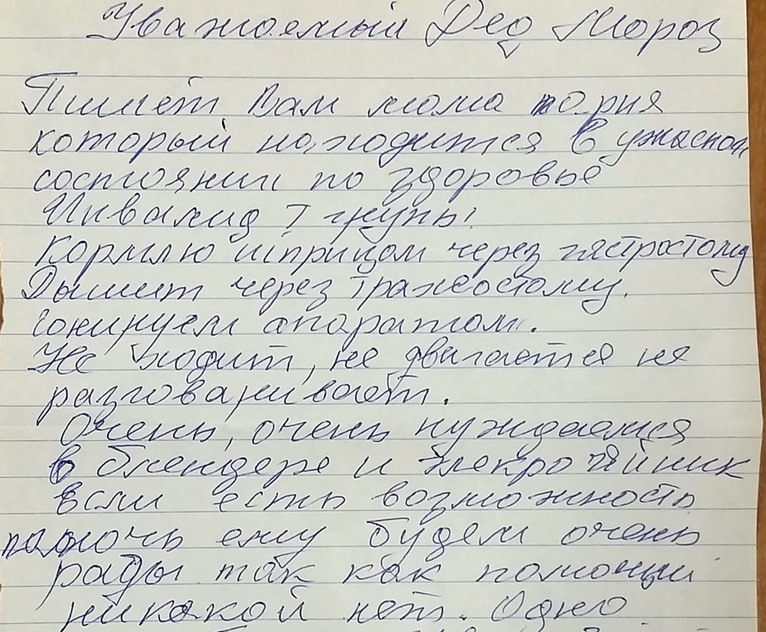 Уважаемый Дед Мороз
Пишет Вам мама парня
который находится в ужасном
состоянии по здоровье
Инвалид I групы.
Кормлю шприцом через гястростому
Дышит через трахеостому.
сонируем апоратом.
Не ходит, не двигается не
разговаривает.
Очень, очень нуждаемся
в блендере и элекрочяйник
если есть возможность
памочь ему будем очень
рады так как помощи
никакой нет. Одно